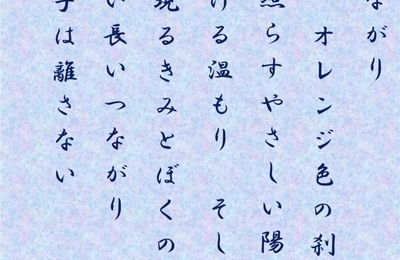 ながり
オレンジ色の刹
照らすやさしい陽
ける温もり そし
現るきみとぼくの
い長いつながり
手は離さない